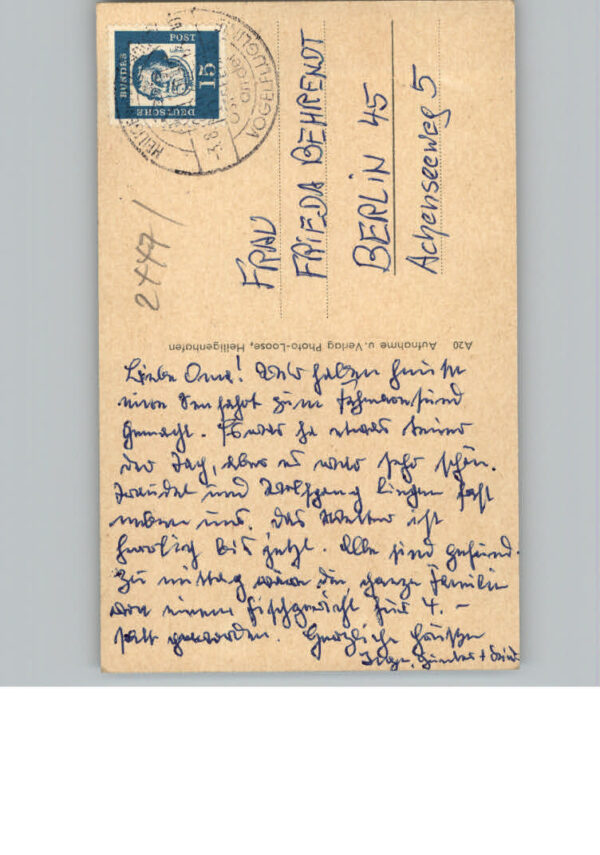 DEUTSCHE
BUNDES
POST
15
VOGELFLUGLINIE
an der
HEILIGE
2447/
FRAU
FRIEDA BEHRENDT
BERLIN 45
Achenseeweg 5
A20 Aufnahme u. Verlag Photo-Loose, Heiligenhafen
Liebe Oma! Wir haben heute
eine Seefahrt zum Fehmarnsund
gemacht. Es war ja etwas
der Tag, aber es war sehr schön.
Traudel und Wolfgang liegen fast
neben uns. Das Wetter ist
herrlich bis jetzt. Alle sind gesund.
Zu mittag wäre die ganze Familie
von einem Fischgericht für 4.–
satt geworden. Herzliche Grüße
Inge, Günter +